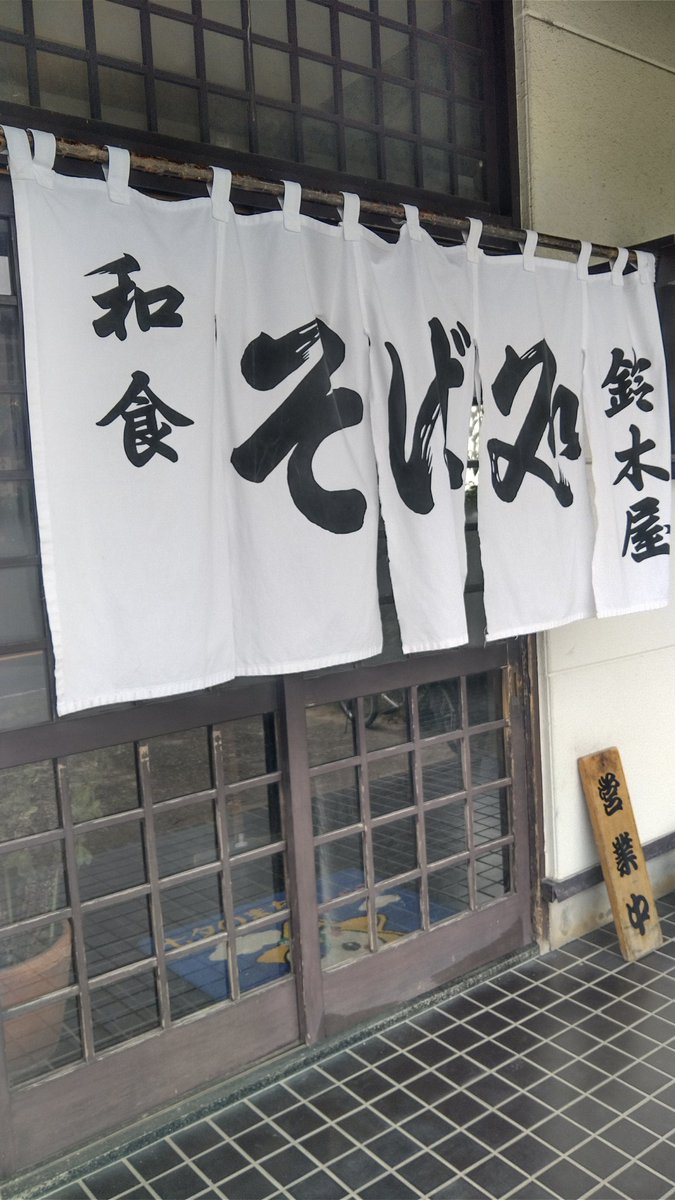 和食
そば処
鈴木屋
営業中